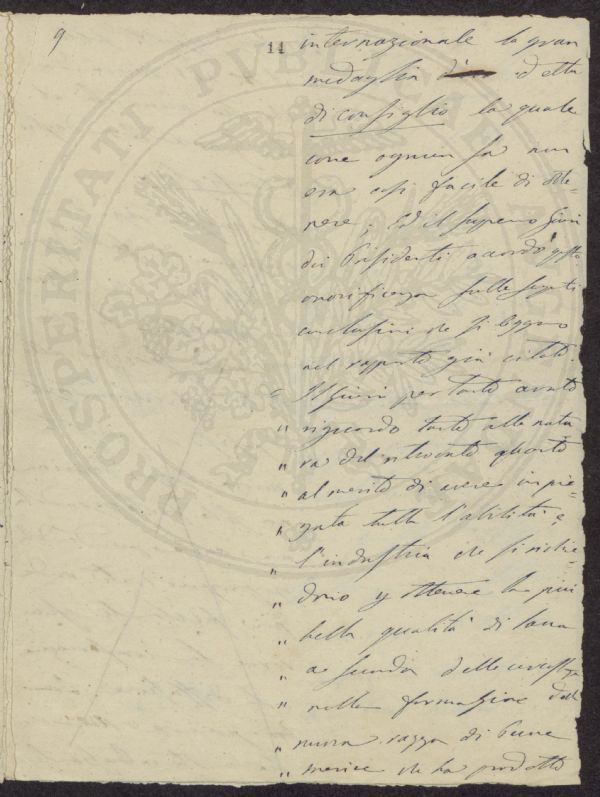 9
14
internazionale la gran
medaglia detta
di consiglio la quale
come ognun sa non
era così facile di otte-
nere; Ed il supremo Giurì
dei Presidenti accordò questa
onorificenza sulle seguenti
conclusioni che si leggono
nel rapporto già citato
" Il Giurì per tanto avuto
" riguardo tanto alla natu
" ra del ritrovato quanto
" al merito di avere impie-
" gata tutta l'abilità e
" l'industria che si richie-
" dono p ottenere la più
" bella qualità di lana
" a seconda delle circostanze
" nella formazione della
" nuova razza di pecore
" merine che ha prodotto
PROSPERITATI PVBLICAE